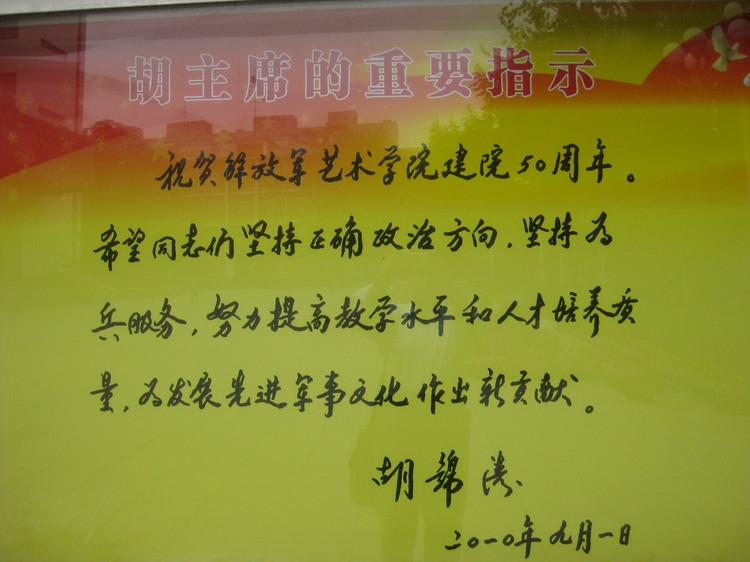 胡主席的重要指示
祝贺解放军艺术学院建院50周年。
希望同志们坚持正确政治方向，坚持为
兵服务，努力提高教学水平和人才培养质
量，为发展先进军事文化作出新贡献。
胡锦涛
二〇一〇年九月一日